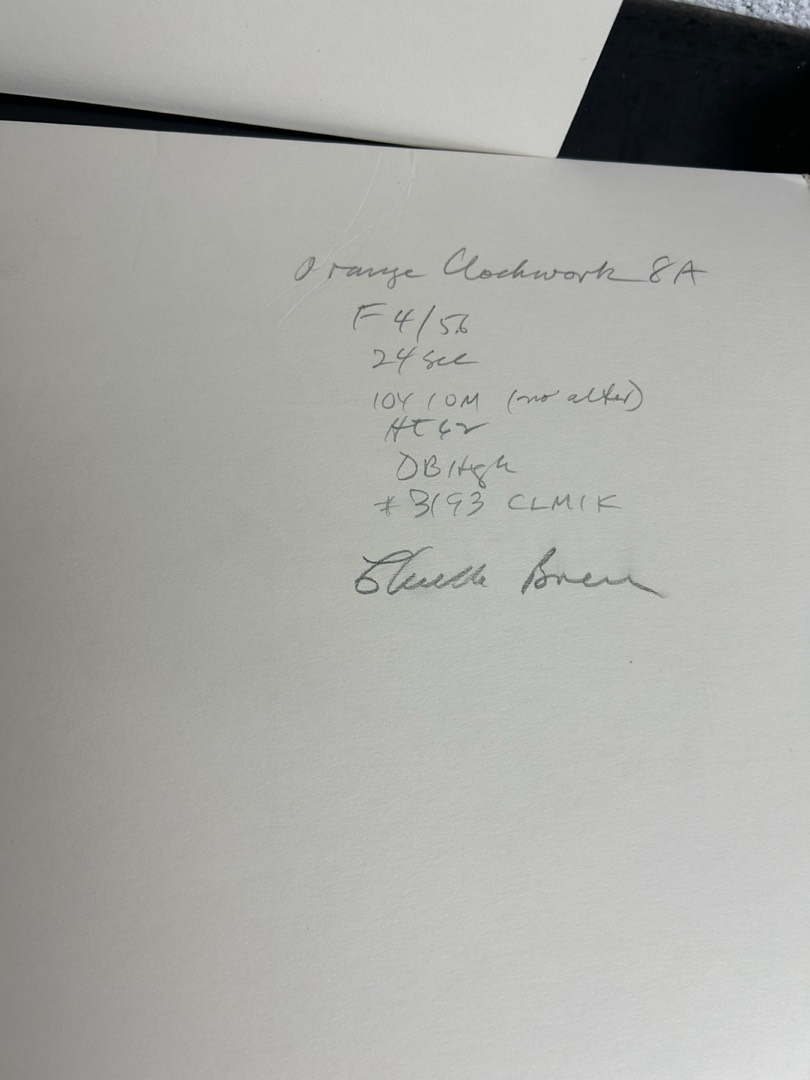 Orange Clockwork 8A
F 4/56
24 sec
10Y 10M (no alter)
HT 62
DB High
#3193 CLM1K